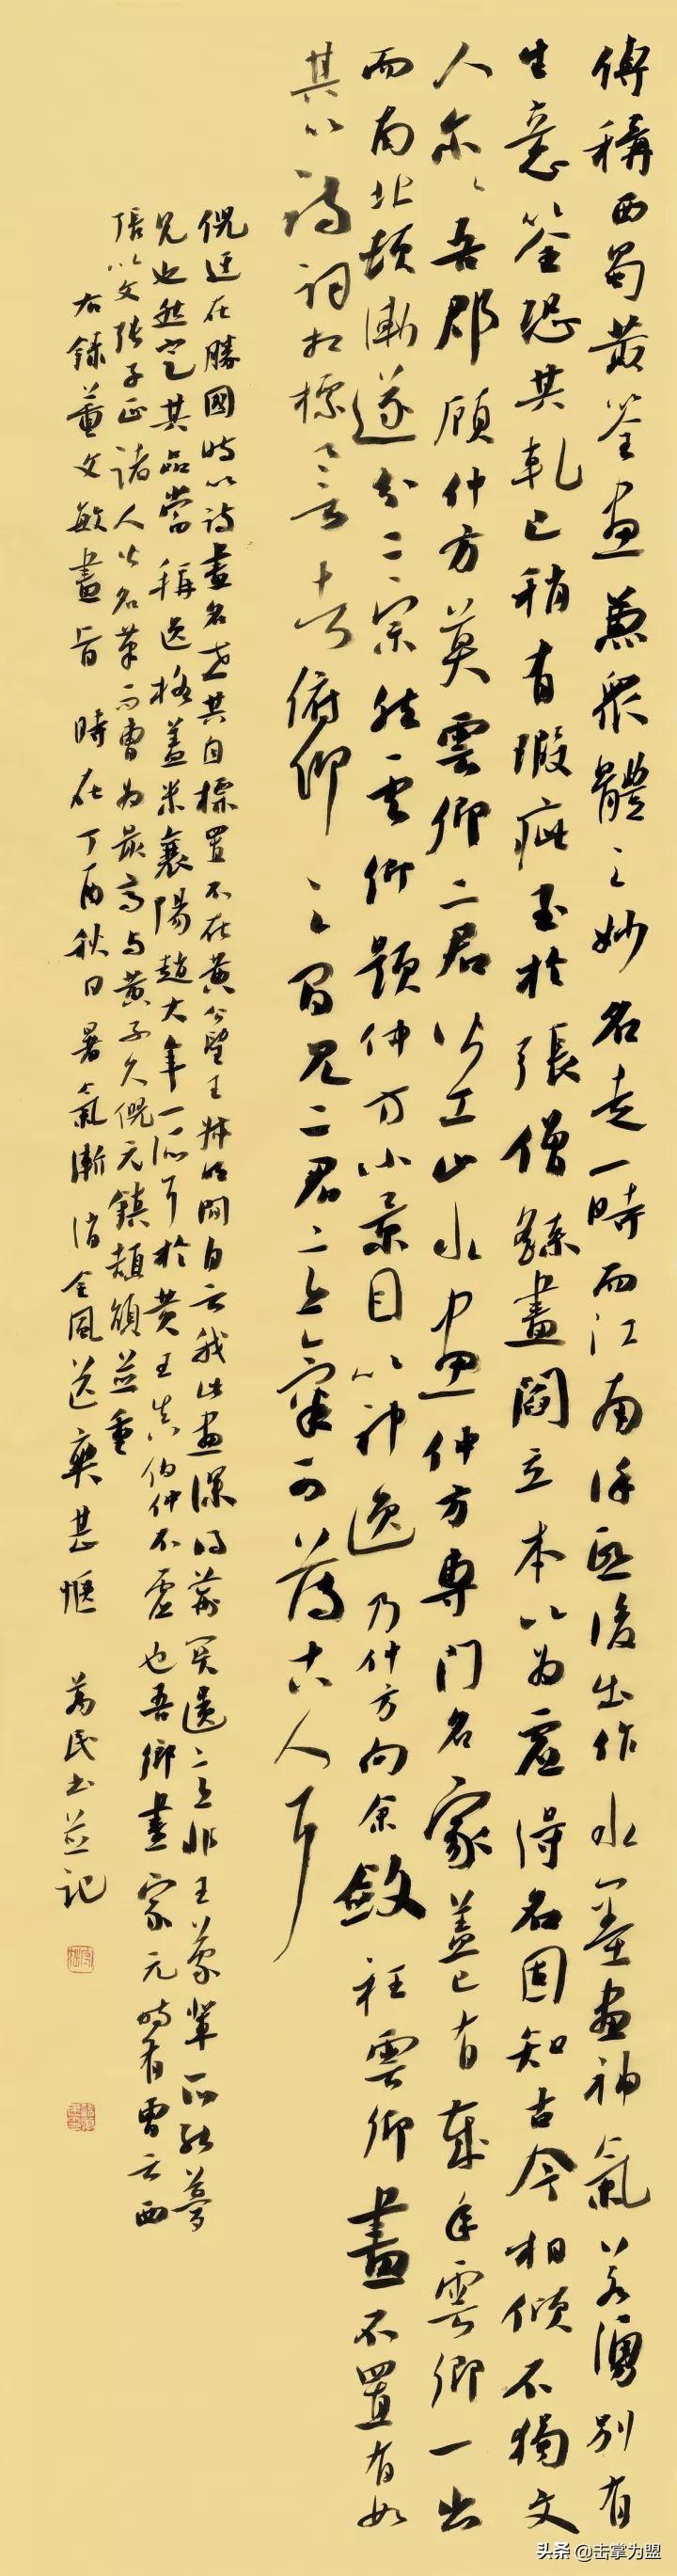 傳稱西蜀黃筌畫兼眾體之妙名走一時而江南徐熙後出作水墨畫神氣若湧別有
生意筌恐其軋己稍有瑕疵至於張僧繇畫閻立本以為虛得名固知古今相傾不獨文
人爾爾吾郡顧仲方莫雲卿二君皆工山水畫仲方專門名家蓋已有歲年雲卿一出
而南北頓漸遂分二宗然雲卿題仲方小景目以神逸乃仲方向余斂衽雲卿畫不置有如
其以詩詞相標譽者俯仰之間見二君二意氣可薄古人耳
倪迂在勝國時以詩畫名世其自標置不在黃公望王叔明間自云我此畫深得荊關遺意非王蒙輩所能夢
見也然定其品當稱逸格蓋米襄陽趙大年一派耳於黃王真伯仲不虛也吾鄉畫家元時有曹云西
張以文張子正諸人皆名筆而曹為最高與黃子久倪元鎮頡頏並重
右錄董文敏畫旨 時在丁酉秋日暑氣漸消金風送爽甚愜 為民書並記
头条 @击掌为盟